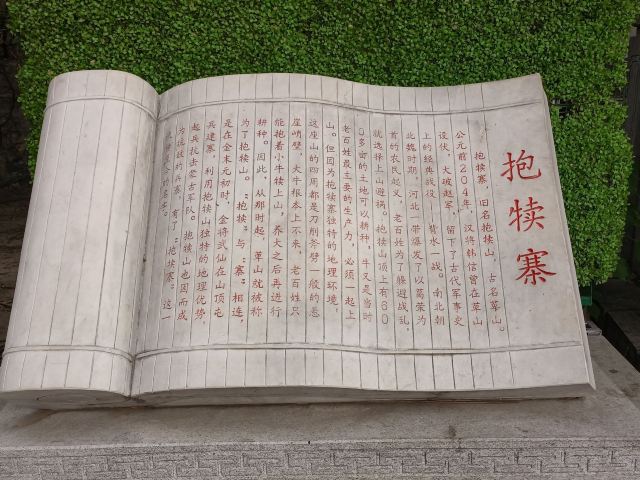 抱犊寨
抱犊寨，旧名抱犊山，古名萆山。
公元前204年，汉将韩信曾在萆山
设伏，大破赵军，留下了古代军事史
上的经典战役“背水一战”。南北朝
北魏时期，河北一带爆发了以葛荣为
首的农民起义，老百姓为了躲避战乱，
就选择上山避祸。抱犊山顶上有60
0多亩的土地可以耕种，牛又是当时
老百姓最主要的生产力，必须一起上
山。但因为抱犊寨独特的地理环境，
这座山的四周都是刀削斧劈一般的悬
崖峭壁，大牛根本上不来，老百姓只
能抱着小牛犊上山，养大之后再进行
耕种。因此，从那时起，萆山就被称
为了抱犊山。“抱犊”与“寨”相连，
是在金末元初时，金将武仙在山顶屯
兵建寨，利用抱犊山独特的地理优势，
起兵抗击蒙古军队。抱犊山也因而成
为抗敌的兵寨，有了“抱犊寨”这一